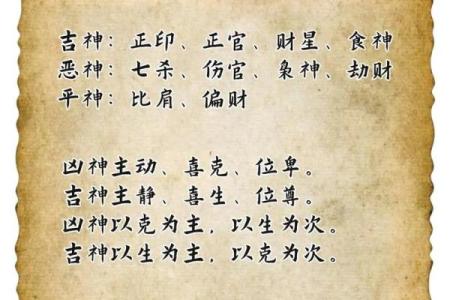 吉神：正印、正官、财星、食神
恶神：七杀、伤官、枭神、劫财
平神：比肩、偏财
凶神主动、喜克、位卑。
吉神主静、喜生、位尊。
凶神以克为主，以生为次。
吉神以生为主，以克为次。